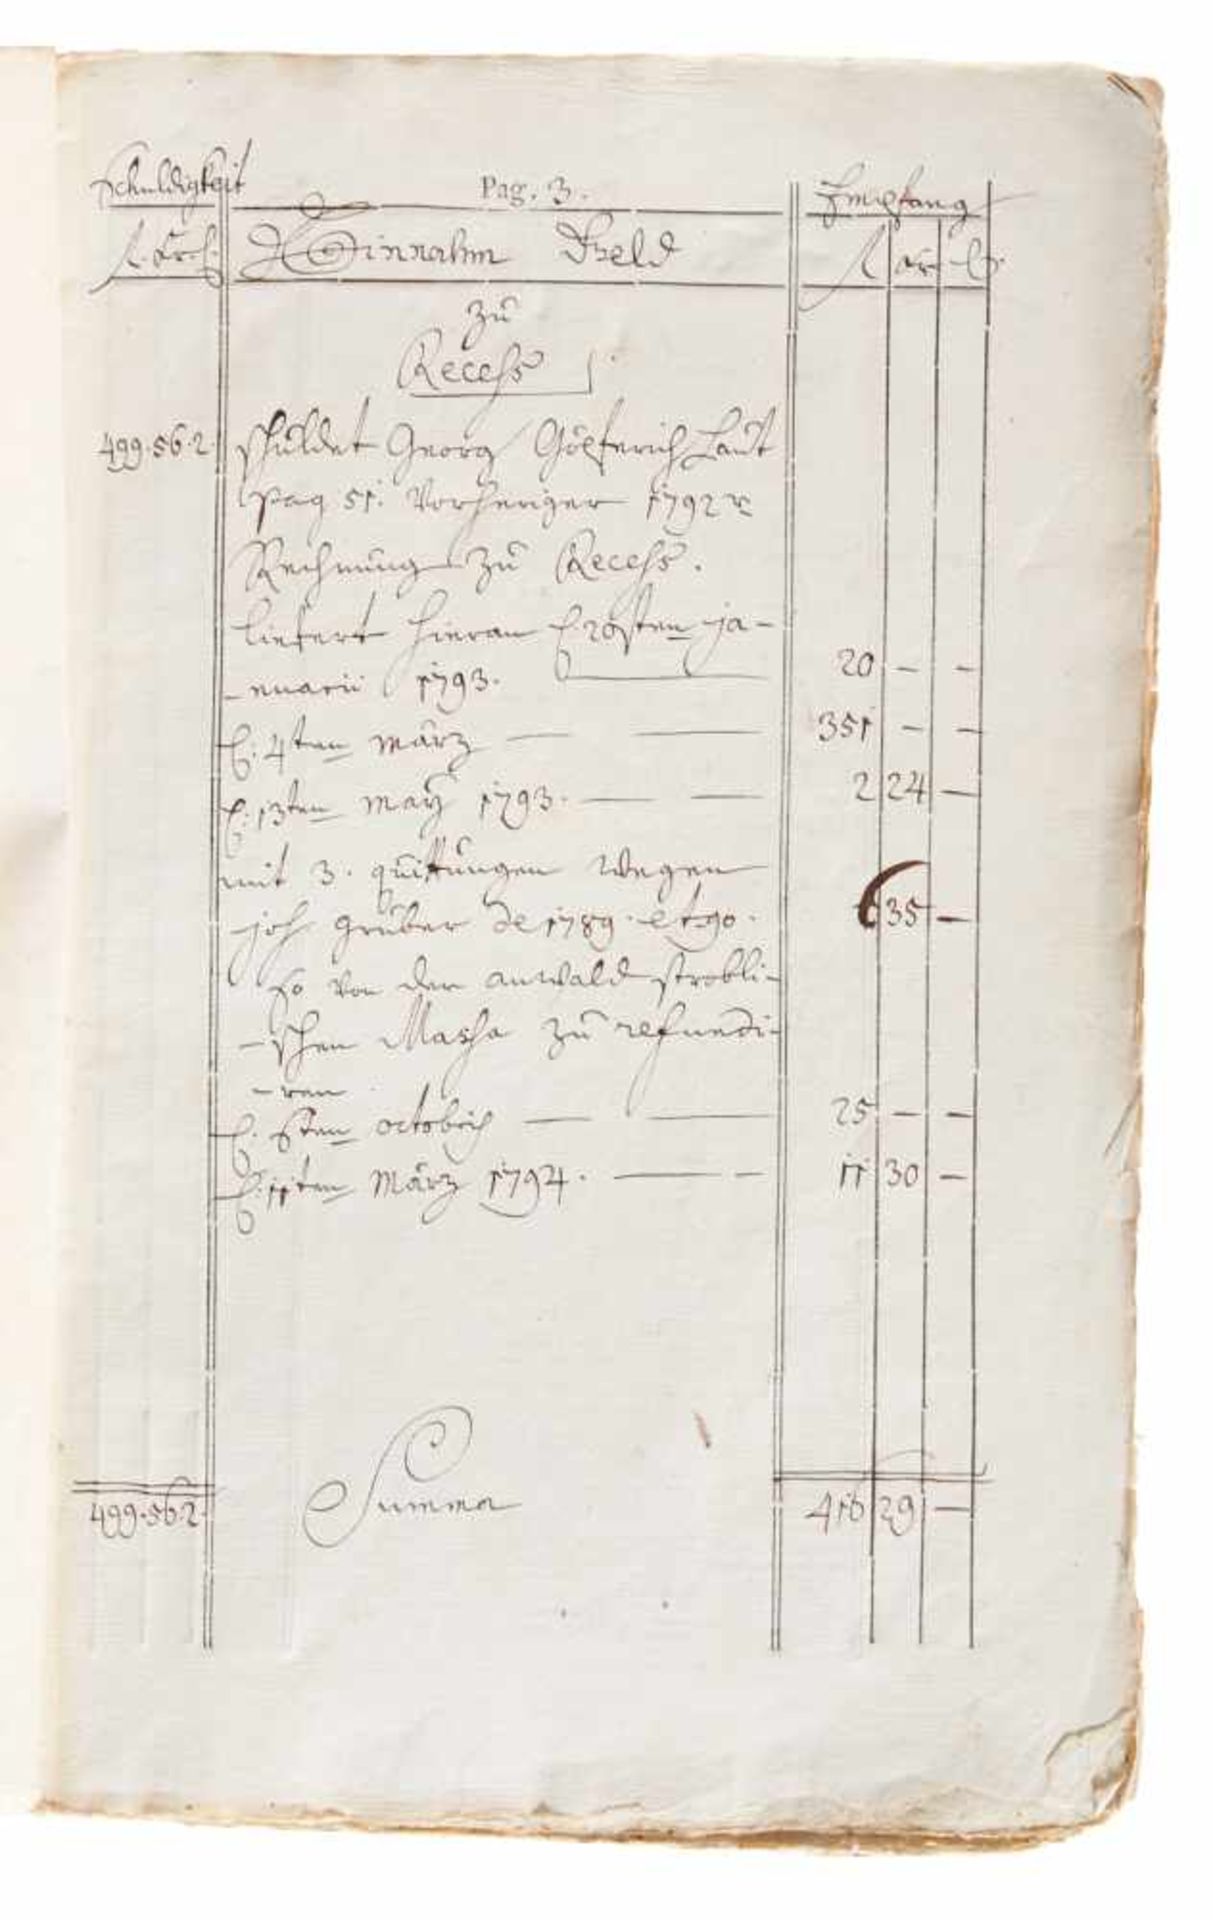 Schuldigkeit Pag. 3. Empfang
f. xr. h. Einnahm Geld f xr h.
zu
Recess
499. 56. 2. schuldet Georg Göpferich Laut
Pag 51. Vorheriger 1792r
Rechnung zu Recess.
liefert hieran d. 20sten ja-
-nuarii 1793. 20 — —
d. 4ten März — — 351 — —
d. 13ten May 1793. — — 2 24 —
mit 3. quittungen wegen
joh gruber de 1789. et 90. 6 35 —
so von der anwald strobli-
-schen Massa zu refundi-
-ren
d. 6ten octobris — — 25 — —
d. 11ten März 1794. — — 11 30 —
499. 56. 2. Summa 416 29 —